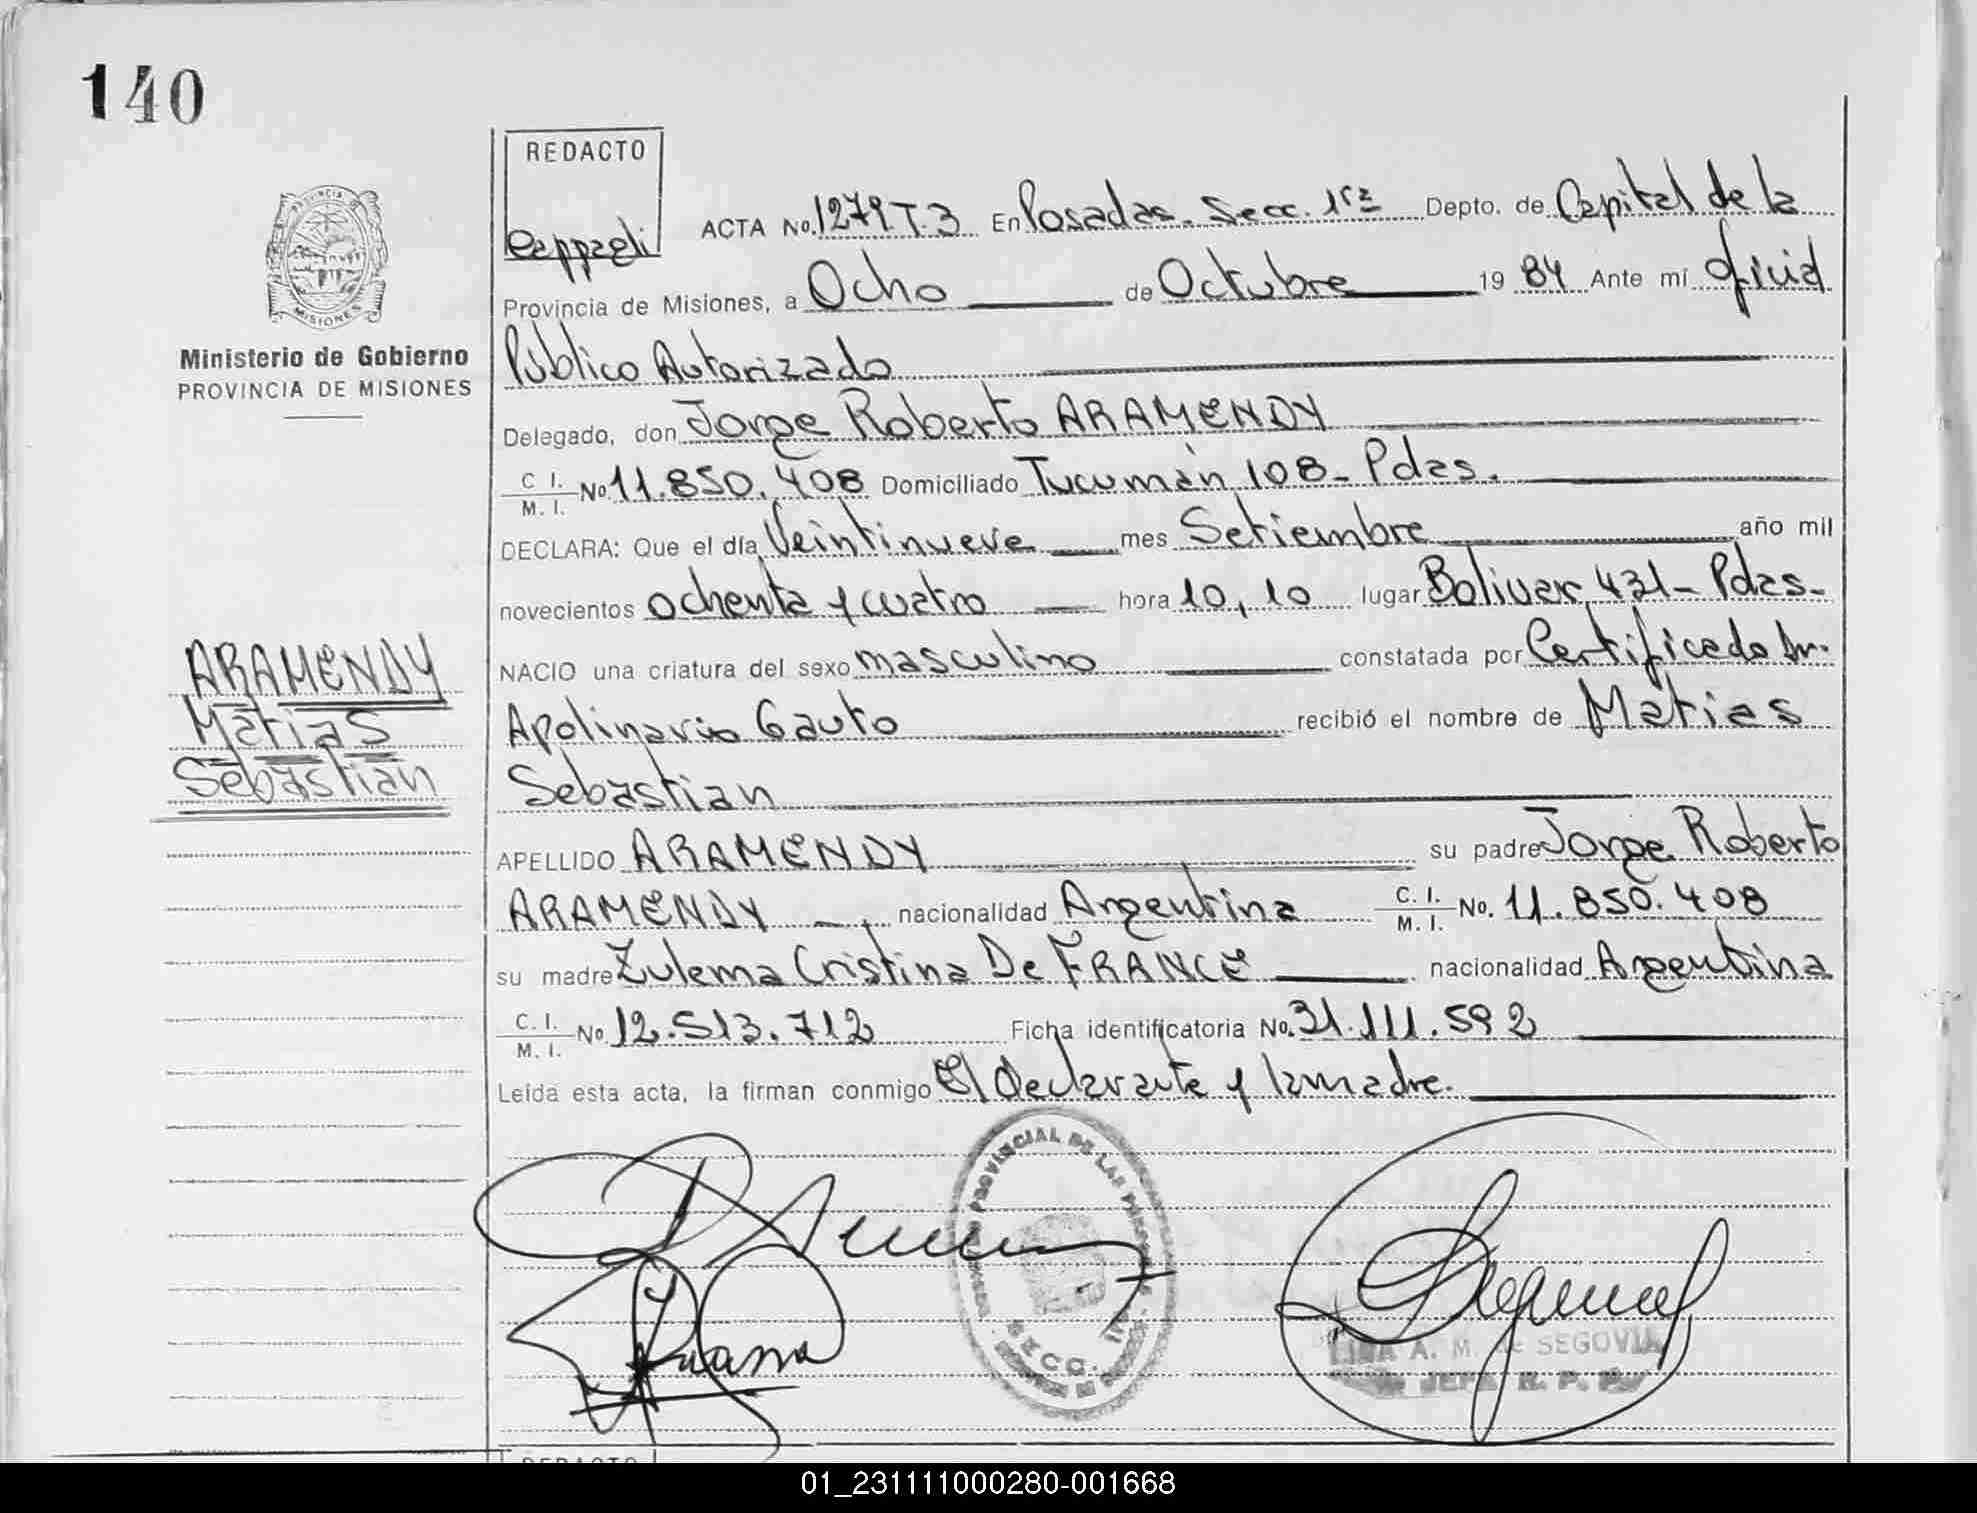 140
REDACTO
Cappagli
ACTA No. 1279 T.3 En Posadas. Secc. 1ra Depto. de Capital de la
Provincia de Misiones, a Ocho de Octubre 19 84 Ante mí oficial
Público Autorizado
Delegado, don Jorge Roberto ARAMENDY
C. I. M. I. No 11.850.408 Domiciliado Tucumán 108- Pdas.
DECLARA: Que el día Veintinueve mes Setiembre año mil
novecientos ochenta y cuatro hora 10,10 lugar Bolivar 431- Pdas-
NACIO una criatura del sexo masculino constatada por Certificado Dr.
Apolinario Gauto recibió el nombre de Matias
Sebastian
APELLIDO ARAMENDY su padre Jorge Roberto
ARAMENDY nacionalidad Argentina C. I. M. I. No. 11.850.408
su madre Zulema Cristina De FRANCE nacionalidad Argentina
C. I. M. I. No 12.513.712 Ficha identificatoria No. 31.111.592
Leída esta acta, la firman conmigo El declarante y la madre.
PROVINCIA
MISIONES
Ministerio de Gobierno
PROVINCIA DE MISIONES
ARAMENDY
Matias
Sebastian
PROVINCIAL DE LAS PERSONAS
SECC.
LINA A. M. de SEGOVIA
JEFA R. P. P.
REDACTO
01_231111000280-001668